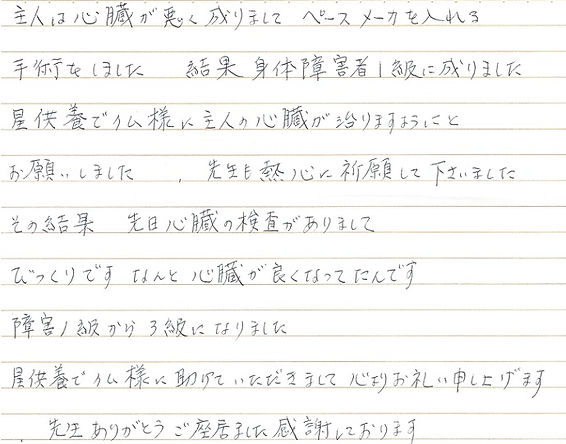 主人は心臓が悪く成りまして ペースメーカを入れる
手術をしました 結果 身体障害者1級に成りました
星供養で仏様に主人の心臓が治りますようにと
お願いしました 、先生も熱心に祈願して下さいました
その結果 先日心臓の検査がありまして
びっくりです なんと心臓が良くなってたんです
障害1級から3級になりました
星供養で仏様に助けていただきまして 心よりお礼い申し上げます
、先生ありがとうご座居ました感謝しております